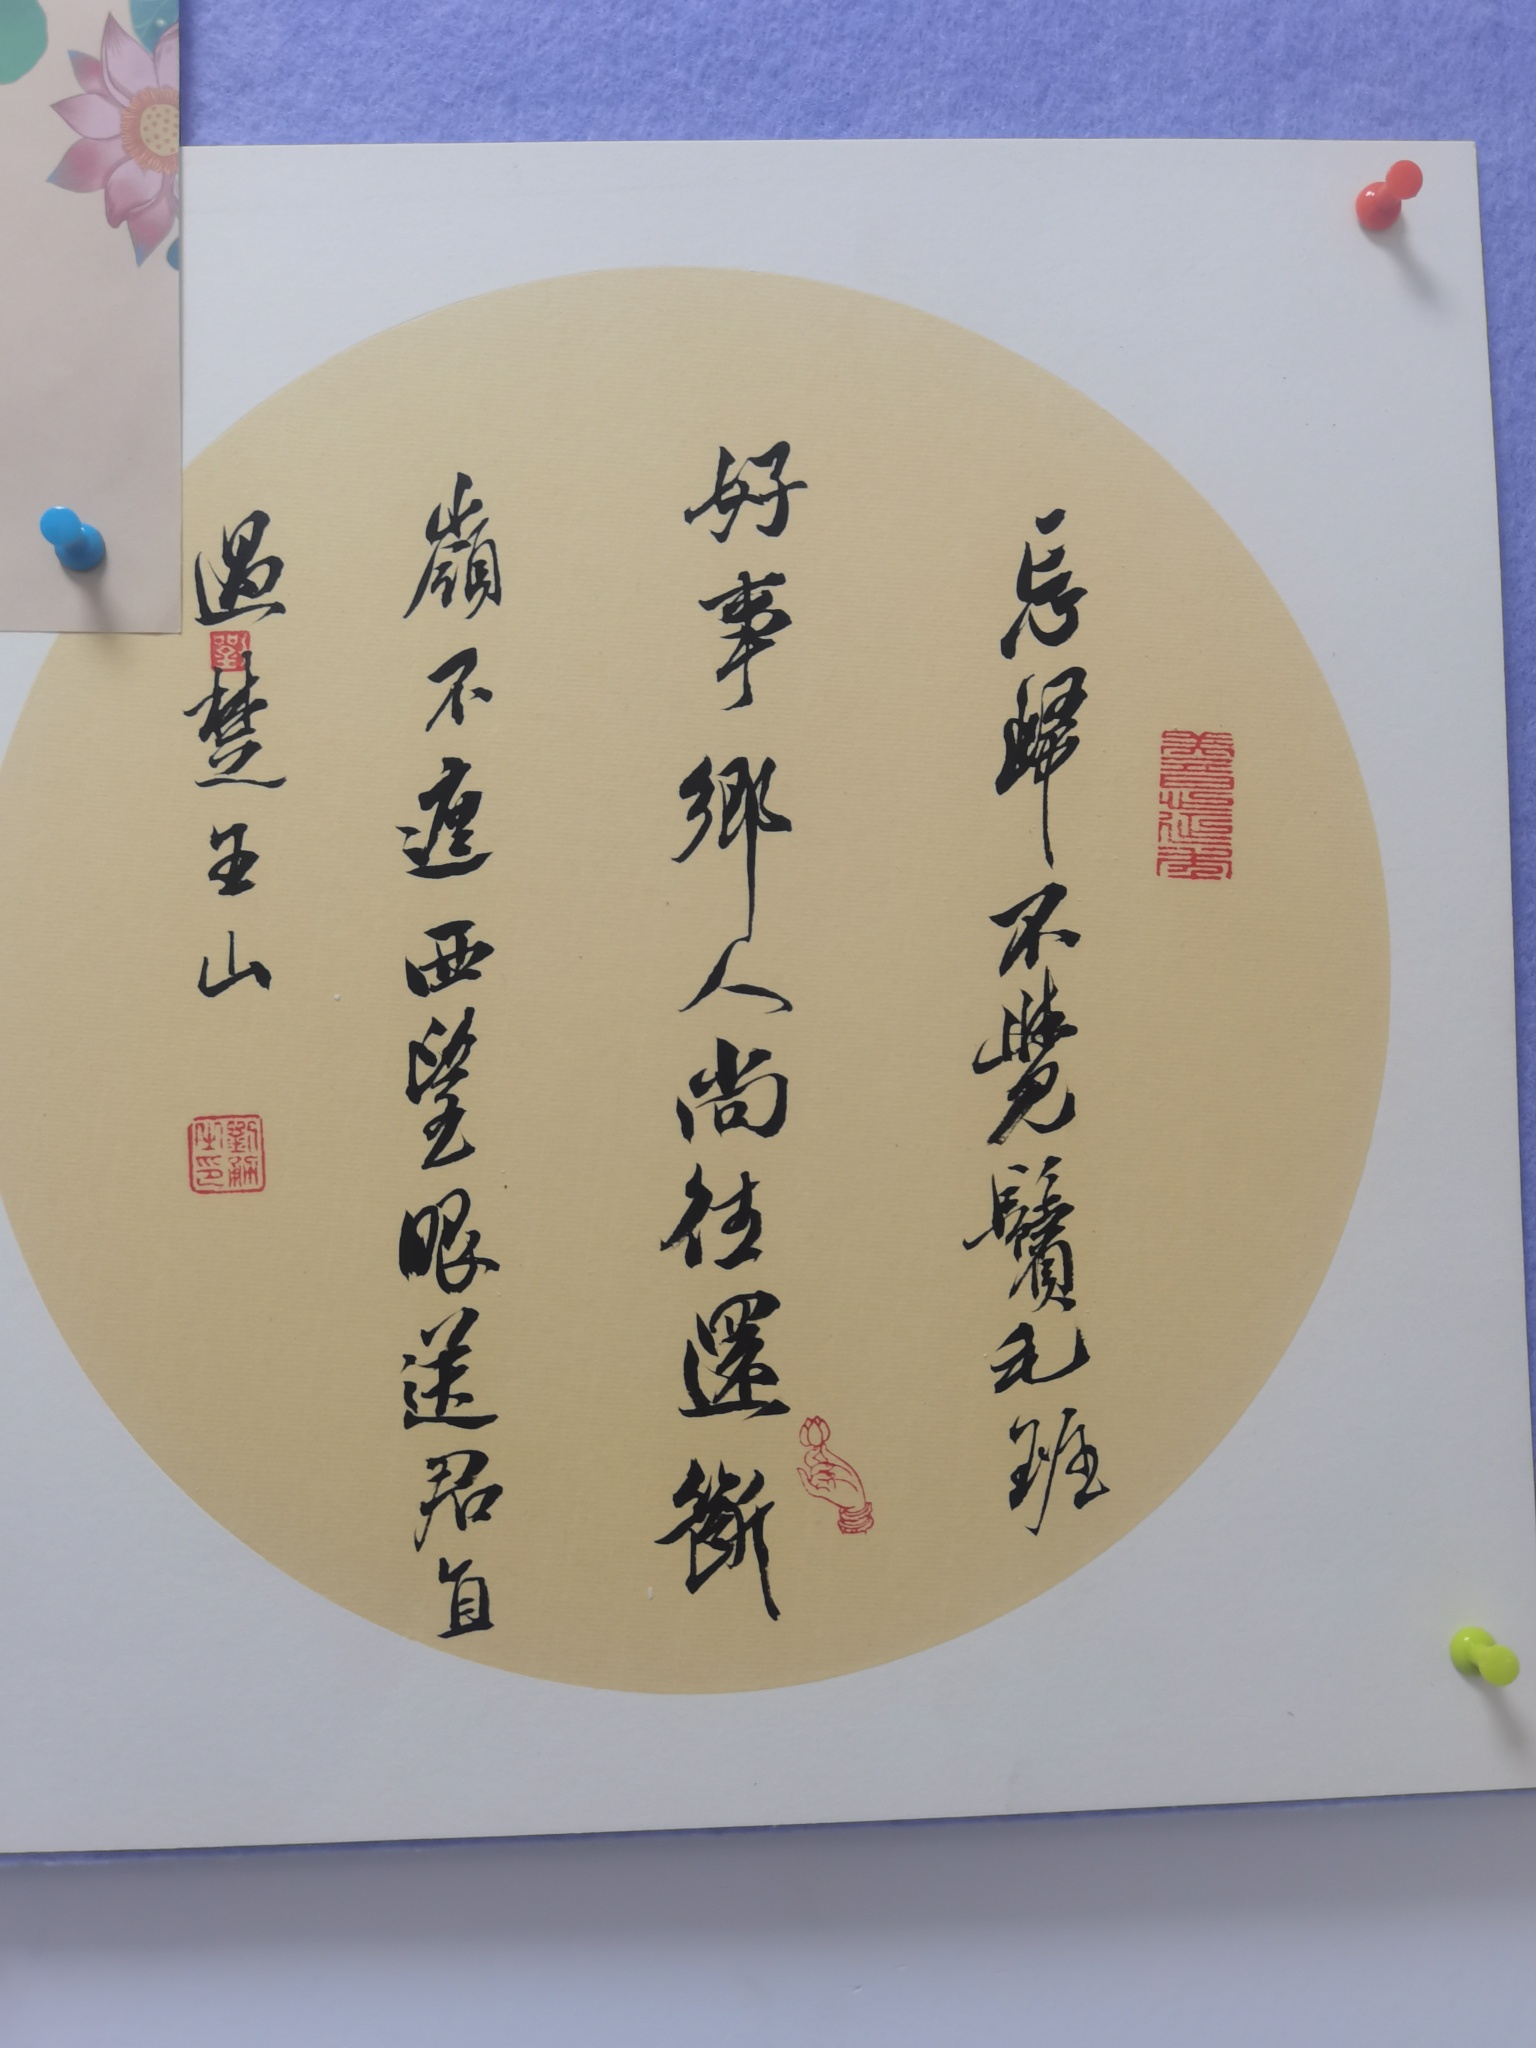 忘歸不覺鬢毛斑
好事鄉人尚往還斷
嶺不遮西望眼送君直
過楚王山
劉